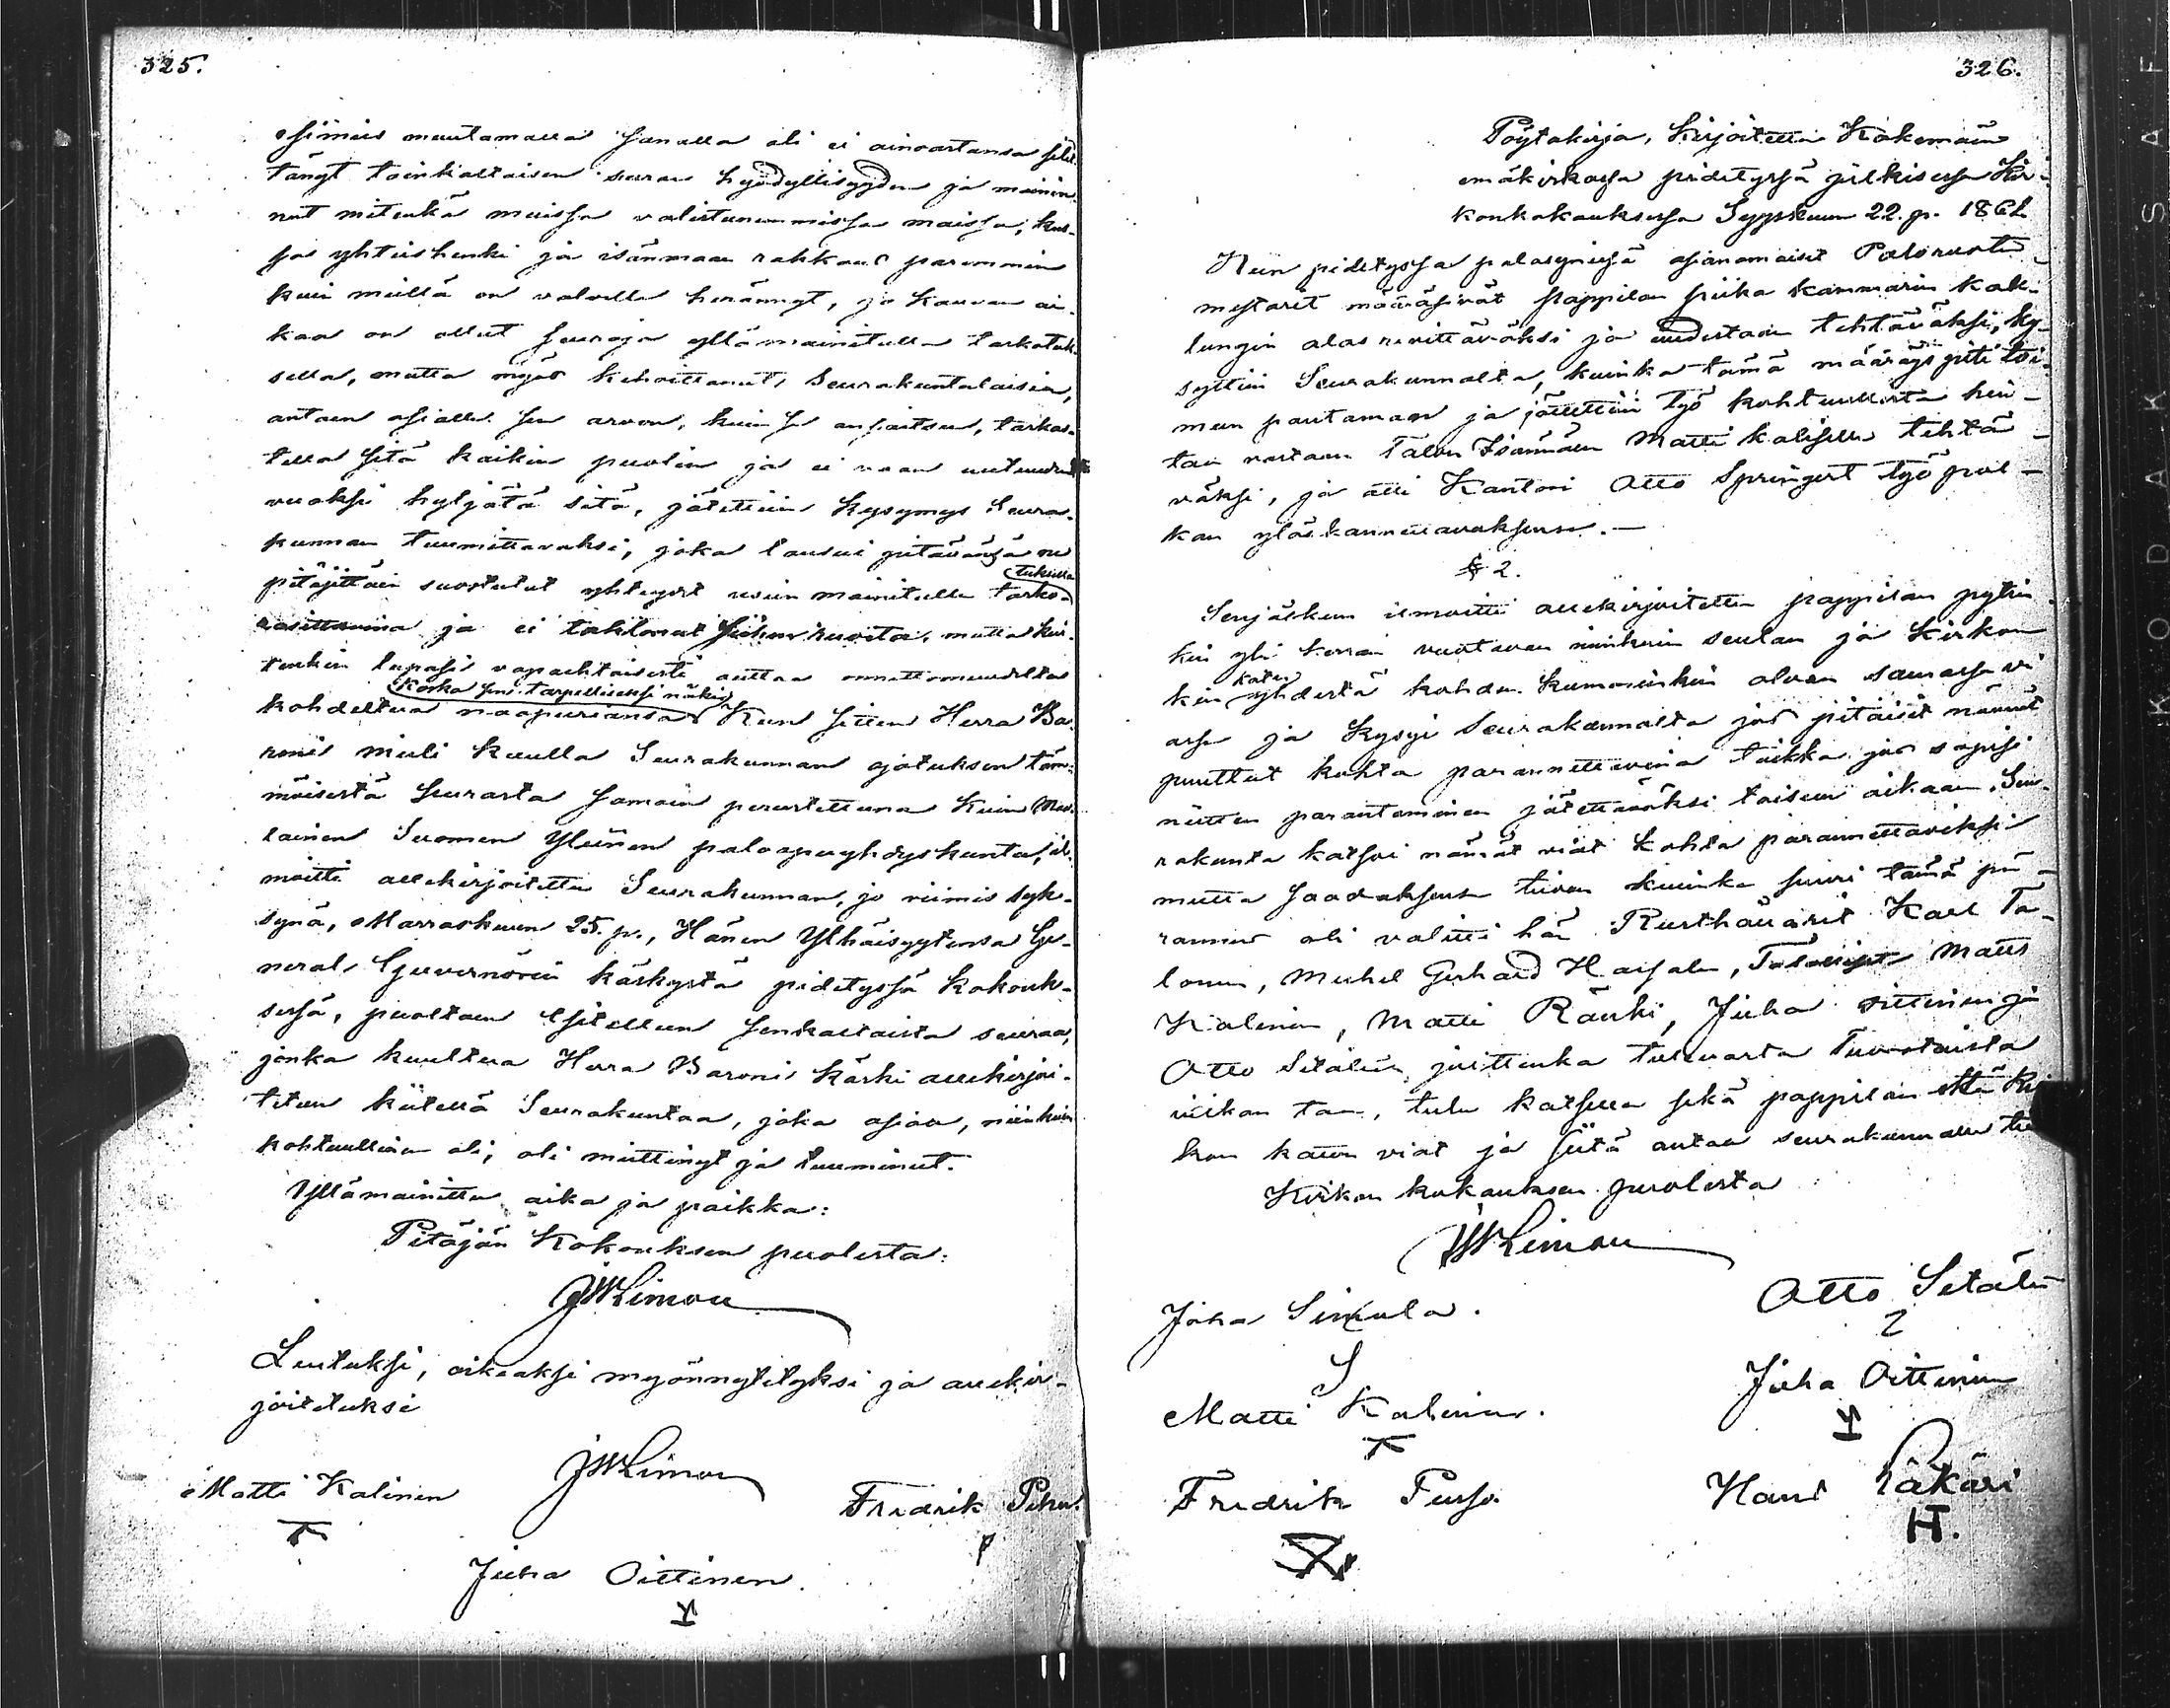 325.
esimies muutamalla sanalla oli ei ainoastansa selit
tänyt toinkaltaisen seuran hyödyllisyyden ja mainin-
nut mitenkä muissa valistuneimmissa maissa, kus-
sa yhteishenki ja isänmaan rakkaus paremmin
kuin meillä on valveilla herännyt, jo kauvan ai-
kaa on ollut seuroja yllämainitulla tarkotuk-
sella, mutta myös kehoittanut Seurakuntalaisia,
antaen asialle sen arvon, kuin se ansaitsee, tarkas-
tella sitä kaikin puolin ja ei vaan uutuuden
vuoksi hyljätä sitä, jätettiin kysymys Seura-
kunnan tuumittavaksi, joka lausui pitävänsä ne
tuksella
pitäjittäin suostutut yhteyst usein mainitulla tarko-
rasittavina ja ei tahtonut siihen suosta, mutta kui-
tenkin lupasi vapaehtoisesti auttaa onnettomuudelta
koska sen tarpelliseksi näkis
kohdeltua naapuriansa Kun sitten Herra Ba-
ronis mieli kuulla Seurakunnan ajatuksen täm-
möisestä Seurasta samoin perustettuna kuin Maa-
lainen Suomen Yleinen paloapuyhdyskunta, il-
moitti allekirjoitettu Seurakunnan, jo viimis syk-
synä, Marraskuun 25. p., Hänen Ylhäisyytensä Ge-
neral Guvernörin käskystä pidetyssä kokouk-
sessa, puoltaen esitelleen senkaltaista seuraa,
jonka kuultua Herra Baronis käski allekirjoi-
tetun kiitellä Seurakuntaa, joka asiaa, niinkuin
kohtuullinen oli, oli miettinyt ja tuuminut.
Yllämainittu aika ja paikka:
Pitäjän Kokouksen puolesta:
JWLimon
Luetuksi, oikeaksi myönnytetyksi ja allekir-
joitetuksi
JWLimon
Matti Kalinen
Fredrik
Juha Oittinen.
326.
Pöytäkirja, kirjoitettu Kokemäen
emäkirkossa pidetyssä julkisessa Kir-
konkokouksessa Syyskuun 22. p. 1862
Kun pidetyssa palosynissä asianomaiset Paloruotu-
mestarit määräsivät pappilan piika kammarin kak-
lungin alas revittäväksi ja uudestaan tehtäväksi, ky-
syttiin Seurakunnalta, kuinka tämä määräys piti toi-
meen pantaman ja jätettiin työ kohtuullista hin-
taa vastaan Talon Isännän Matti Kaliselle tehtä-
väksi, ja otti Kantori Otto Springert työ pal-
kan ylöskannettavaksensa. —
§ 2.
Senjälkeen ilmoitti allekirjoitettu pappilan pytin
kin yli kerran vuotavan niinkuin seulan ja Kirkon
katon
kin yhdestä kohden kummiskin olevan samassa vi
assa ja kysyi Seurakunnalta jos pitäisit nämät
puuttut kohta parannettavina taikka jos sopisi
niitten parantaminen jätettäväksi toiseen aikaan. Seu-
rakunta katsoi nämät viat kohta parannettaviksi
mutta saadaksensa tiedon kuinka suuri tämä pa-
rannus oli valitti hän Rusthållarit Karl Ta-
lonen, Mickel Gerhard Harjala, Talolliset Matts
Kalinen, Matti Ränki, Juha Oittinen ja
Otto Setälän, joittenka tulevasta Tuorstaista
viikon taa, tulee katsella sekä pappilan että Kir
kon katon viat ja siitä antaa seurakunnalle tie
Kirkon kokouksen puolesta
JWLimon
Otto Setälä
Juha Sinkula.
Juha Oittinen
Matti Kalinen.
Fredrik
HT.